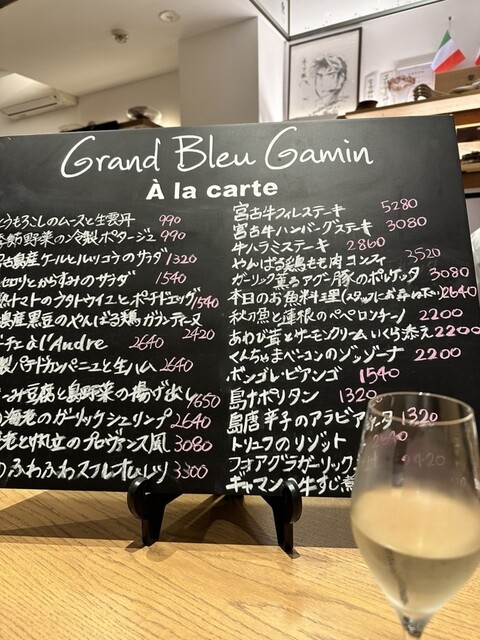 Grand Bleu Gamin
À la carte
とうもろこしのムースと生雲丹 990
季節野菜の冷製ポタージュ 990
宮古島産ケールとルッコラのサラダ 1320
セロリとからすみのサラダ 1540
トマトのラタトゥイユとポーチドエッグ 1540
島産黒豆のやんばる鶏ガランティーヌ 2420
à l'Andre 2640
製パテドカンパーニュと生ハム 2640
み豆腐と島野菜の揚げ出し 1650
海老のガーリックシュリンプ 2640
老と帆立のプロヴァンス風 3080
ふわふわスフレオムレツ 3300
宮古牛フィレステーキ 5280
宮古牛ハンバーグステーキ 3080
牛ハラミステーキ 2860
やんばる鶏もも肉コンフィ 3520
ガーリック薫るアグー豚のポルケッタ 3080
本日のお魚料理(スタッフにお尋ね下さい) 2640
秋の魚と蓮根のペペロンチーノ 2200
あわび茸とサーモンクリームいくら添え 2200
くんちゃまベーコンのゾッゾーナ 2200
ボンゴレ・ビアンコ 1540
島ナポリタン 1320
島唐辛子のアラビアータ 1320
トリュフのリゾット
フォアグラガーリック 2420
ギャマンの牛すじ煮